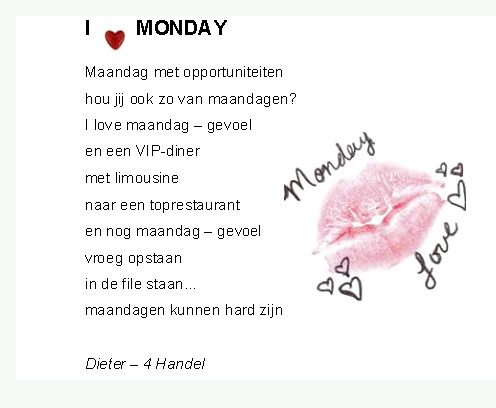 I ❤ MONDAY
Maandag met opportuniteiten
hou jij ook zo van maandagen?
I love maandag – gevoel
en een VIP-diner
met limousine
naar een toprestaurant
en nog maandag – gevoel
vroeg opstaan
in de file staan...
maandagen kunnen hard zijn
Dieter – 4 Handel
Monday
Love